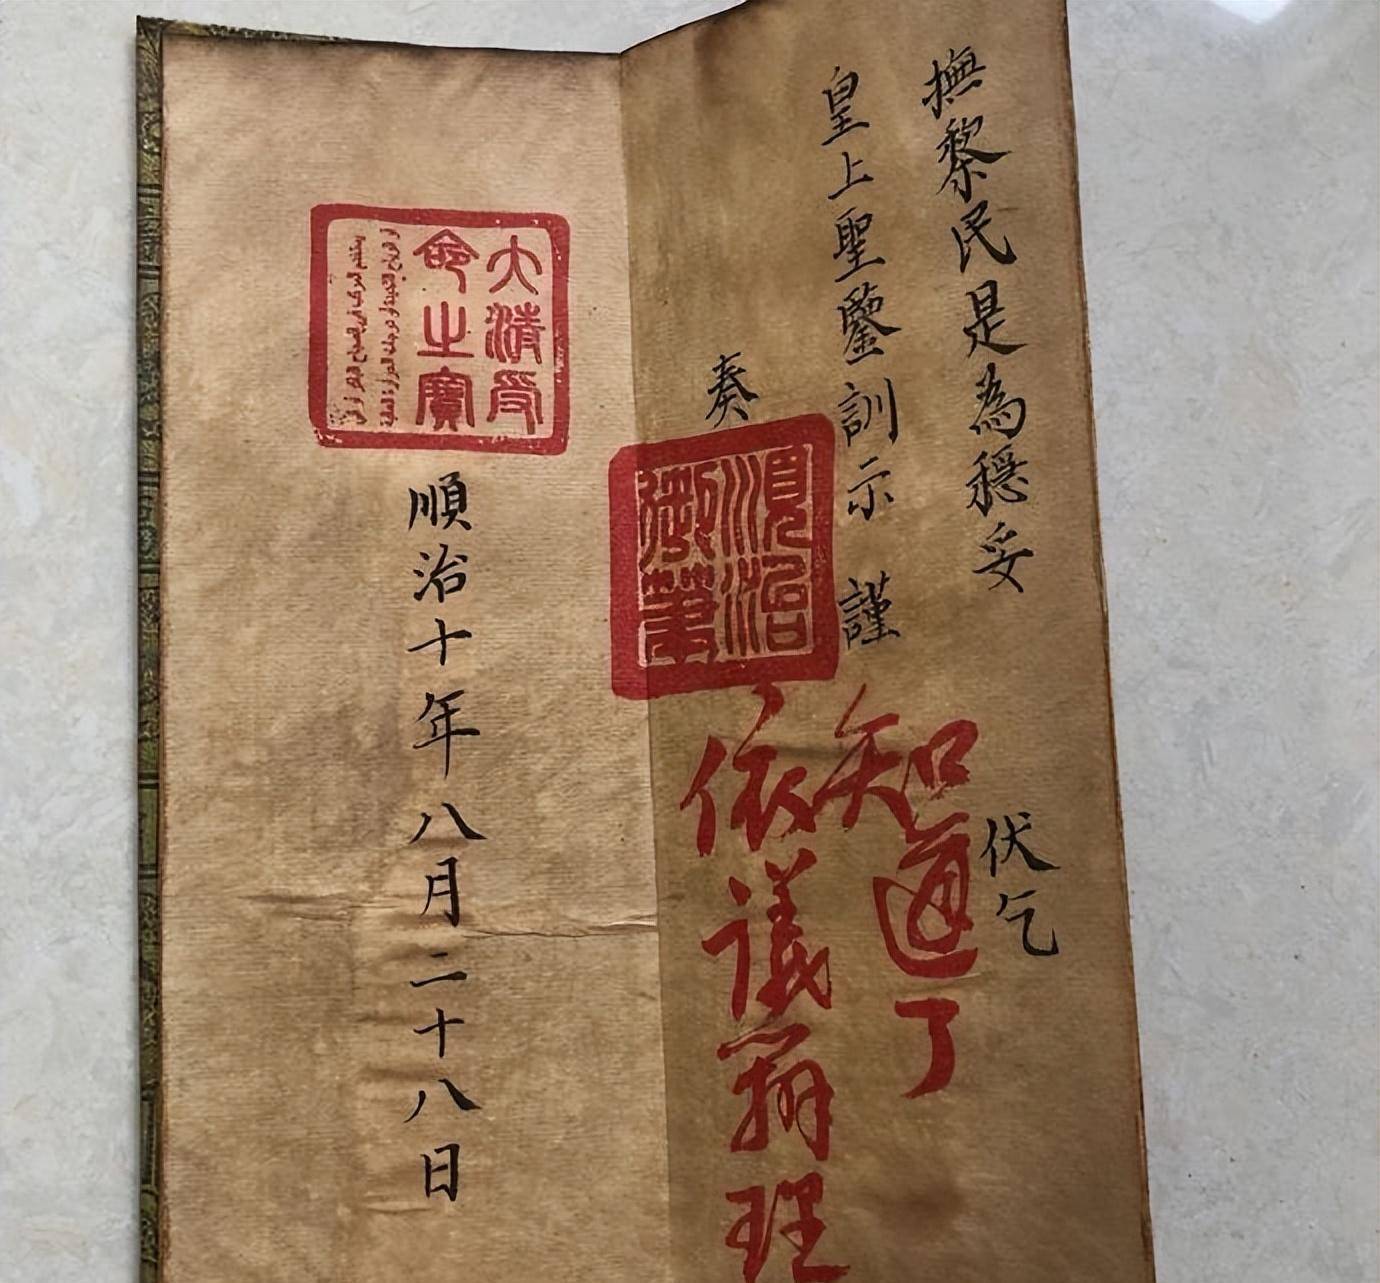 撫黎民是為穩妥 伏乞
皇上聖鑒訓示 謹
奏
知道了
依議辦理
順治
御筆
大清受
命之寶
順治十年八月二十八日